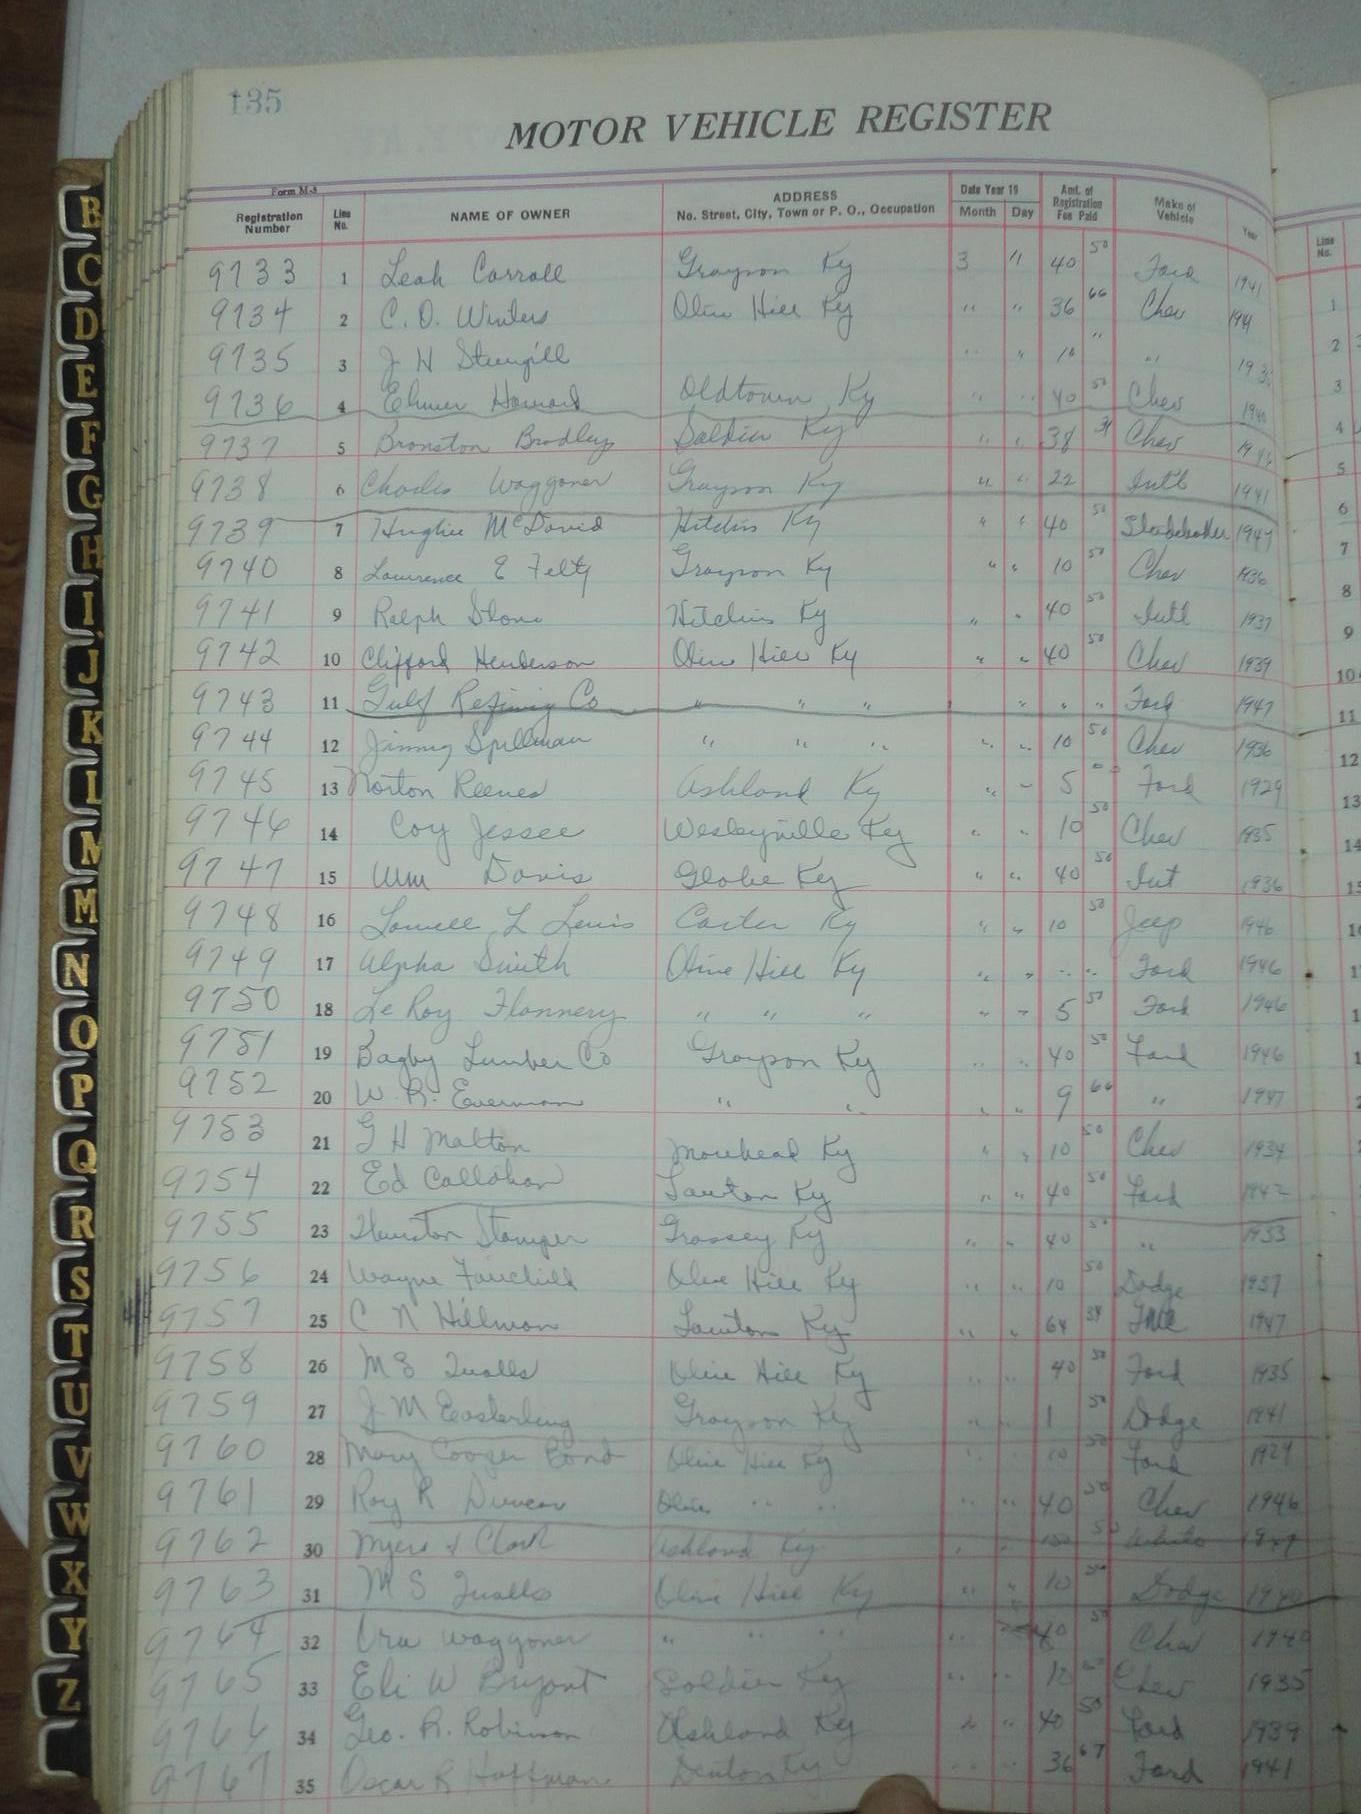 135
MOTOR VEHICLE REGISTER
Form M-3
Registration Number Line No. NAME OF OWNER ADDRESS No. Street, City, Town or P. O., Occupation Date Year 19 Month Day Amt. of Registration Fee Paid Make of Vehicle Year
9733 1 Leah Carroll Grayson Ky 3 11 40 50 Ford 1941
9734 2 C. O. Winters Olive Hill Ky " " 36 66 Chev 1941
9735 3 J H Sturgill " " 10 " "
9736 4 Elmer Howard Oldtown Ky " " 40 50 Chev 1940
9737 5 Bronston Bradley Soldier Ky " " 38 Chev
9738 6 Charles Waggoner Grayson Ky " " 22 Intl 1941
9739 7 Hughie McDavid Hitchins Ky " " 40 50 Studebaker 1947
9740 8 Lawrence E Felty Grayson Ky " " 10 50 Chev 1936
9741 9 Ralph Stone Hitchins Ky " " 40 50 Intl 1937
9742 10 Clifford Henderson Olive Hill Ky " " 40 50 Chev 1939
9743 11 Gulf Refining Co " " " " " " Ford 1947
9744 12 Jimmy Spillman " " " " " 10 50 Chev 1936
9745 13 Norton Reeves Ashland Ky " " 5 Ford 1929
9746 14 Coy Jessee Wesleyville Ky " " 10 50 Chev 1935
9747 15 Wm Davis Globe Ky " " 40 50 Int 1936
9748 16 Lowell L Lewis Carter Ky " " 10 50 Jeep 1946
9749 17 Alpha Smith Olive Hill Ky " " " " Ford 1946
9750 18 Le Roy Flannery " " " " " 5 50 Ford 1946
9751 19 Bagby Lumber Co Grayson Ky " " 40 50 Ford 1946
9752 20 W. R. Everman " " " " 9 66 " 1947
9753 21 G H Malton Morehead Ky " " 10 50 Chev 1934
9754 22 Ed Callahan Lawton Ky " " 40 50 Ford 1942
9755 23 Thurston Stamper Grassey Ky " " 40 50 " 1933
9756 24 Wayne Fairchild Olive Hill Ky " " 10 50 Dodge 1937
9757 25 C N Hillman Lawton Ky " " 64 1947
9758 26 M S Qualls Olive Hill Ky " " 40 50 Ford 1935
9759 27 J M Easterling Grayson Ky " " 1 50 Dodge 1941
9760 28 Mary Cooper Bond Olive Hill Ky " " 10 50 Ford 1929
9761 29 Roy R Duncan Olive " " " " 40 50 Chev 1946
9762 30 Myers & Clark Ashland Ky " " 50 White
9763 31 M S Qualls Olive Hill Ky " " 10 50 Dodge 1940
9764 32 Ora Waggoner " " " " 40 50 Chev 1940
9765 33 Eli W Bryant Soldier Ky " " 10 50 Chev 1935
9766 34 Geo. R. Robinson Ashland Ky " " 40 50 Ford 1939
9767 35 Oscar R Huffman Denton Ky " " 36 67 Ford 1941
B
C
D
E
F
G
H
I
J
K
L
M
M
N
O
P
Q
R
S
T
U
V
W
X
Y
Z
Line No.
1
2
3
4
5
6
7
8
9
10
11
12
13
14